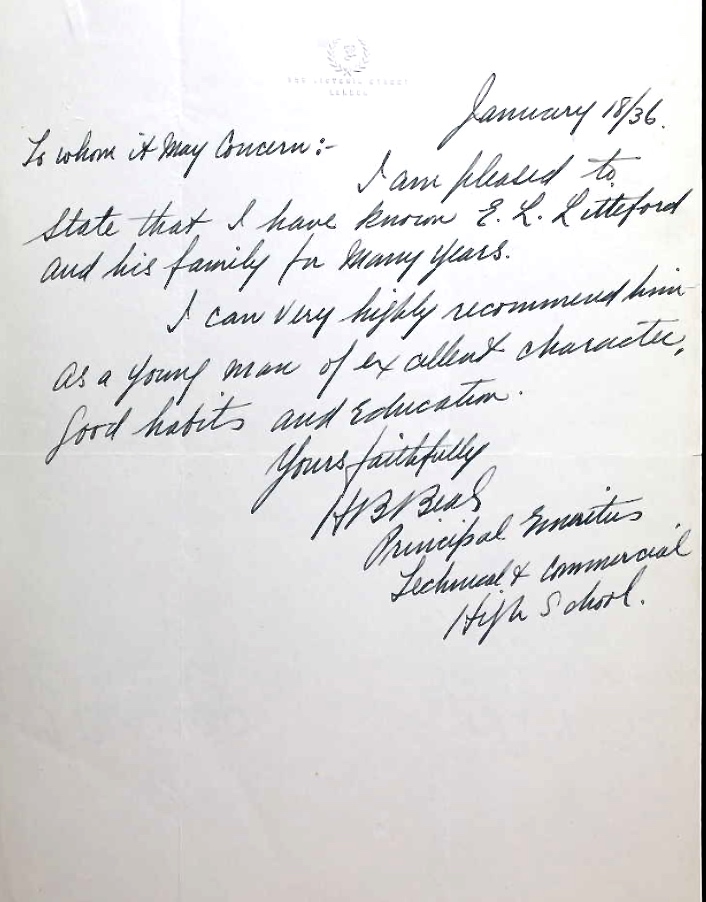 VICTORIA STREET
LONDON
January 18/36.
To whom it May Concern:-
I am pleased to
State that I have known E. L. Litteford
and his family for Many years.
I can very highly recommend him
as a young man of excellent character,
good habits and Education.
Yours faithfully
H B Beal
Principal Emeritus
Technical & Commercial
High School.